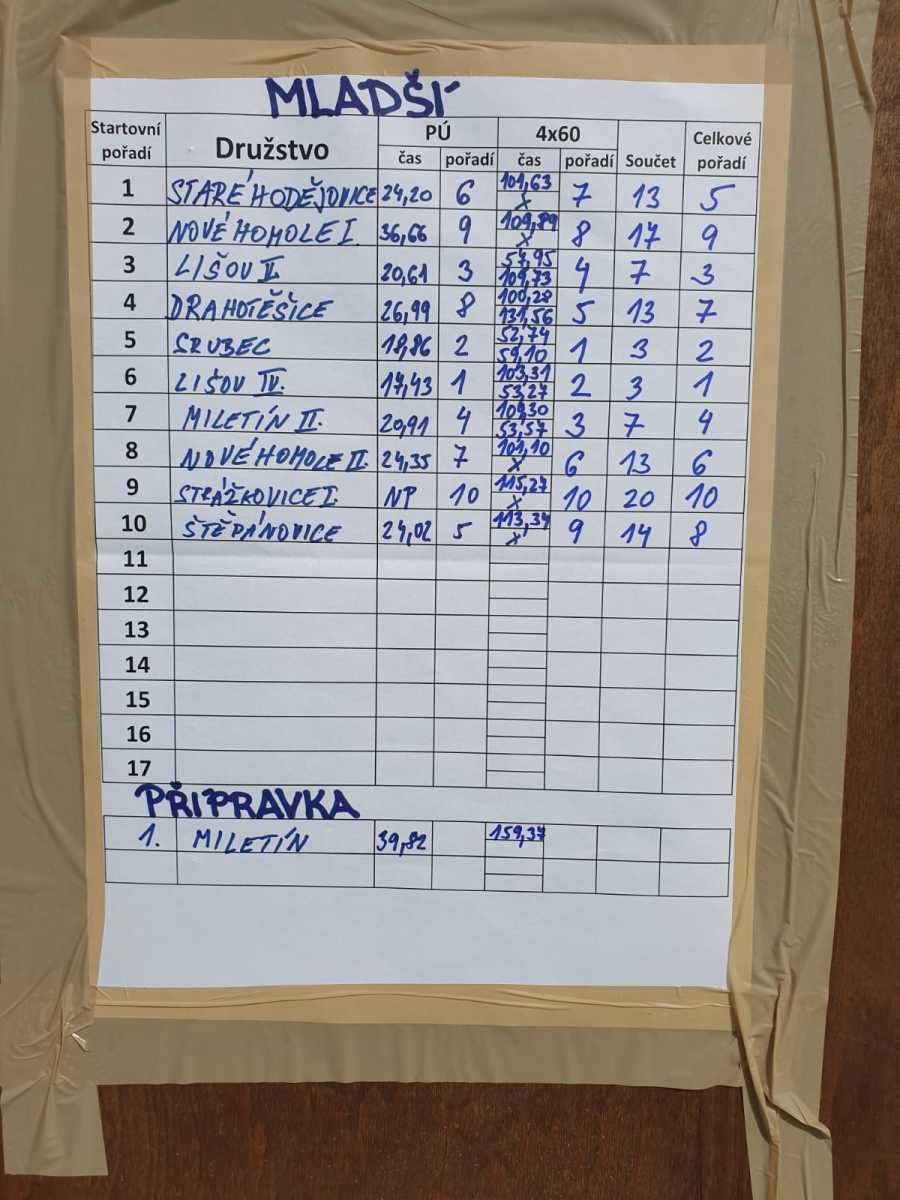 MLADŠÍ
Startovní pořadí Družstvo PÚ 4x60 Součet Celkové pořadí
čas pořadí čas pořadí
1 STARÉ HODĚJOVICE 24,20 6 101,63 x 7 13 5
2 NOVÉ HOMOLE I. 36,66 9 109,89 x 8 17 9
3 LIŠOV II. 20,61 3 57,95 109,73 4 7 3
4 DRAHOTĚŠICE 26,99 8 100,28 131,56 5 13 7
5 SRUBEC 18,86 2 52,74 59,10 1 3 2
6 LIŠOV IV. 17,43 1 103,31 53,27 2 3 1
7 MILETÍN II. 20,91 4 109,30 53,57 3 7 4
8 NOVÉ HOMOLE II. 24,35 7 101,10 x 6 13 6
9 STRÁŽKOVICE I. NP 10 115,27 x 10 20 10
10 ŠTĚPÁNOVICE 24,02 5 113,34 x 9 14 8
11
12
13
14
15
16
17
PŘÍPRAVKA
1. MILETÍN 39,82 159,37